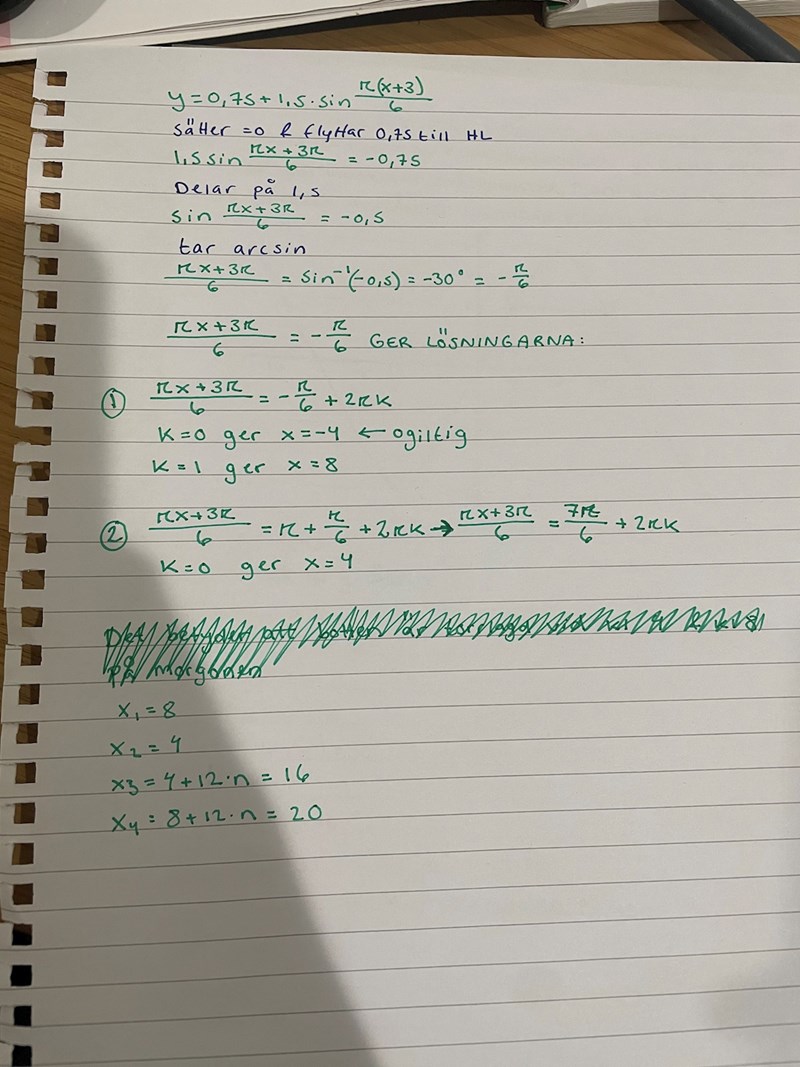 y = 0,75 + 1,5 · sin π(x+3)/6
sätter =0 & flyttar 0,75 till HL
1,5 sin πx + 3π/6 = -0,75
Delar på 1,5
sin πx + 3π/6 = -0,5
tar arcsin
πx + 3π/6 = sin⁻¹(-0,5) = -30° = -π/6
πx + 3π/6 = -π/6 GER LÖSNINGARNA:
① πx + 3π/6 = -π/6 + 2πk
k=0 ger x=-4 ← ogiltig
k=1 ger x=8
② πx + 3π/6 = π + π/6 + 2πk → πx + 3π/6 = 7π/6 + 2πk
k=0 ger x=4
x₁ = 8
x₂ = 4
x3 = 4 + 12·n = 16
x₄ = 8 + 12·n = 20